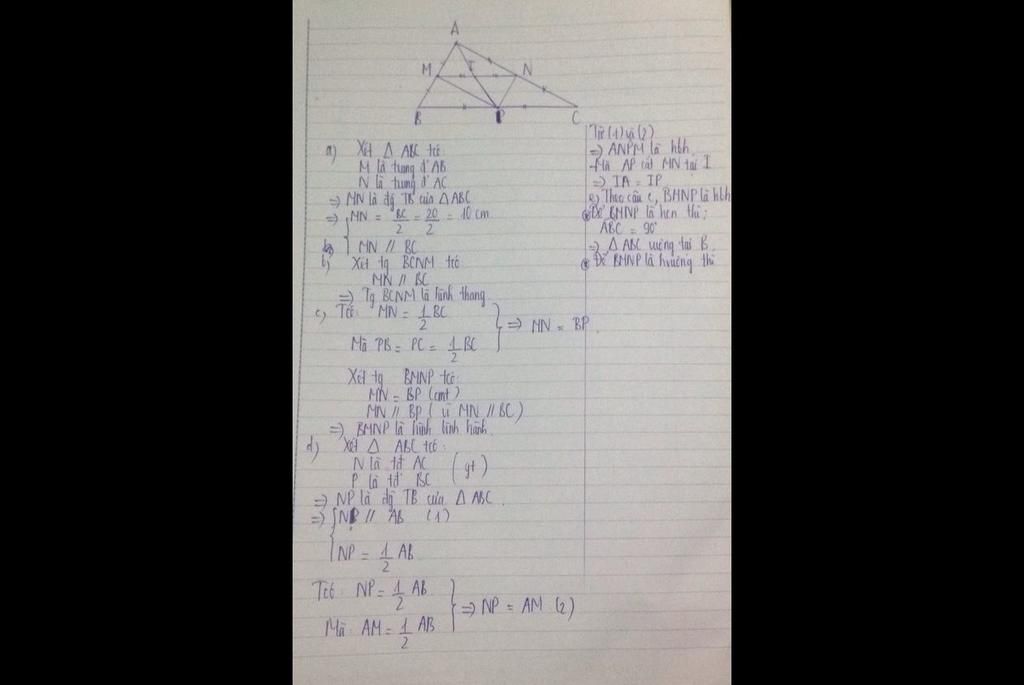 A
M
I
N
B
P
C
a) Xét Δ ABC tcó:
M là trung đ' AB
N là trung đ' AC
=> MN là đg TB của Δ ABC
=> MN = BC/2 = 20/2 = 10 cm
MN // BC
b) Xét tg BCNM tcó
MN // BC
=> Tg BCNM là hình thang
c) Tcó: MN = 1/2 BC
Mà PB = PC = 1/2 BC
=> MN = BP.
Xét tg BMNP tcó:
MN = BP (cmt)
MN // BP (vì MN // BC)
=> BMNP là hình bình hành
d) Xét Δ ABC tcó:
N là tđ' AC
P là tđ' BC
(gt)
=> NP là đg TB của Δ ABC.
=> NP // AB (1)
NP = 1/2 AB
Tcó: NP = 1/2 AB
Mà: AM = 1/2 AB
=> NP = AM (2)
Từ (1) và (2)
=> ANPM là hbh
Mà AP cắt MN tại I
=> IA = IP
e) Theo câu c, BMNP là hbh
Để BMNP là hcn thì:
ABC = 90°
=> Δ ABC vuông tại B.
Để BMNP là hvuông thì